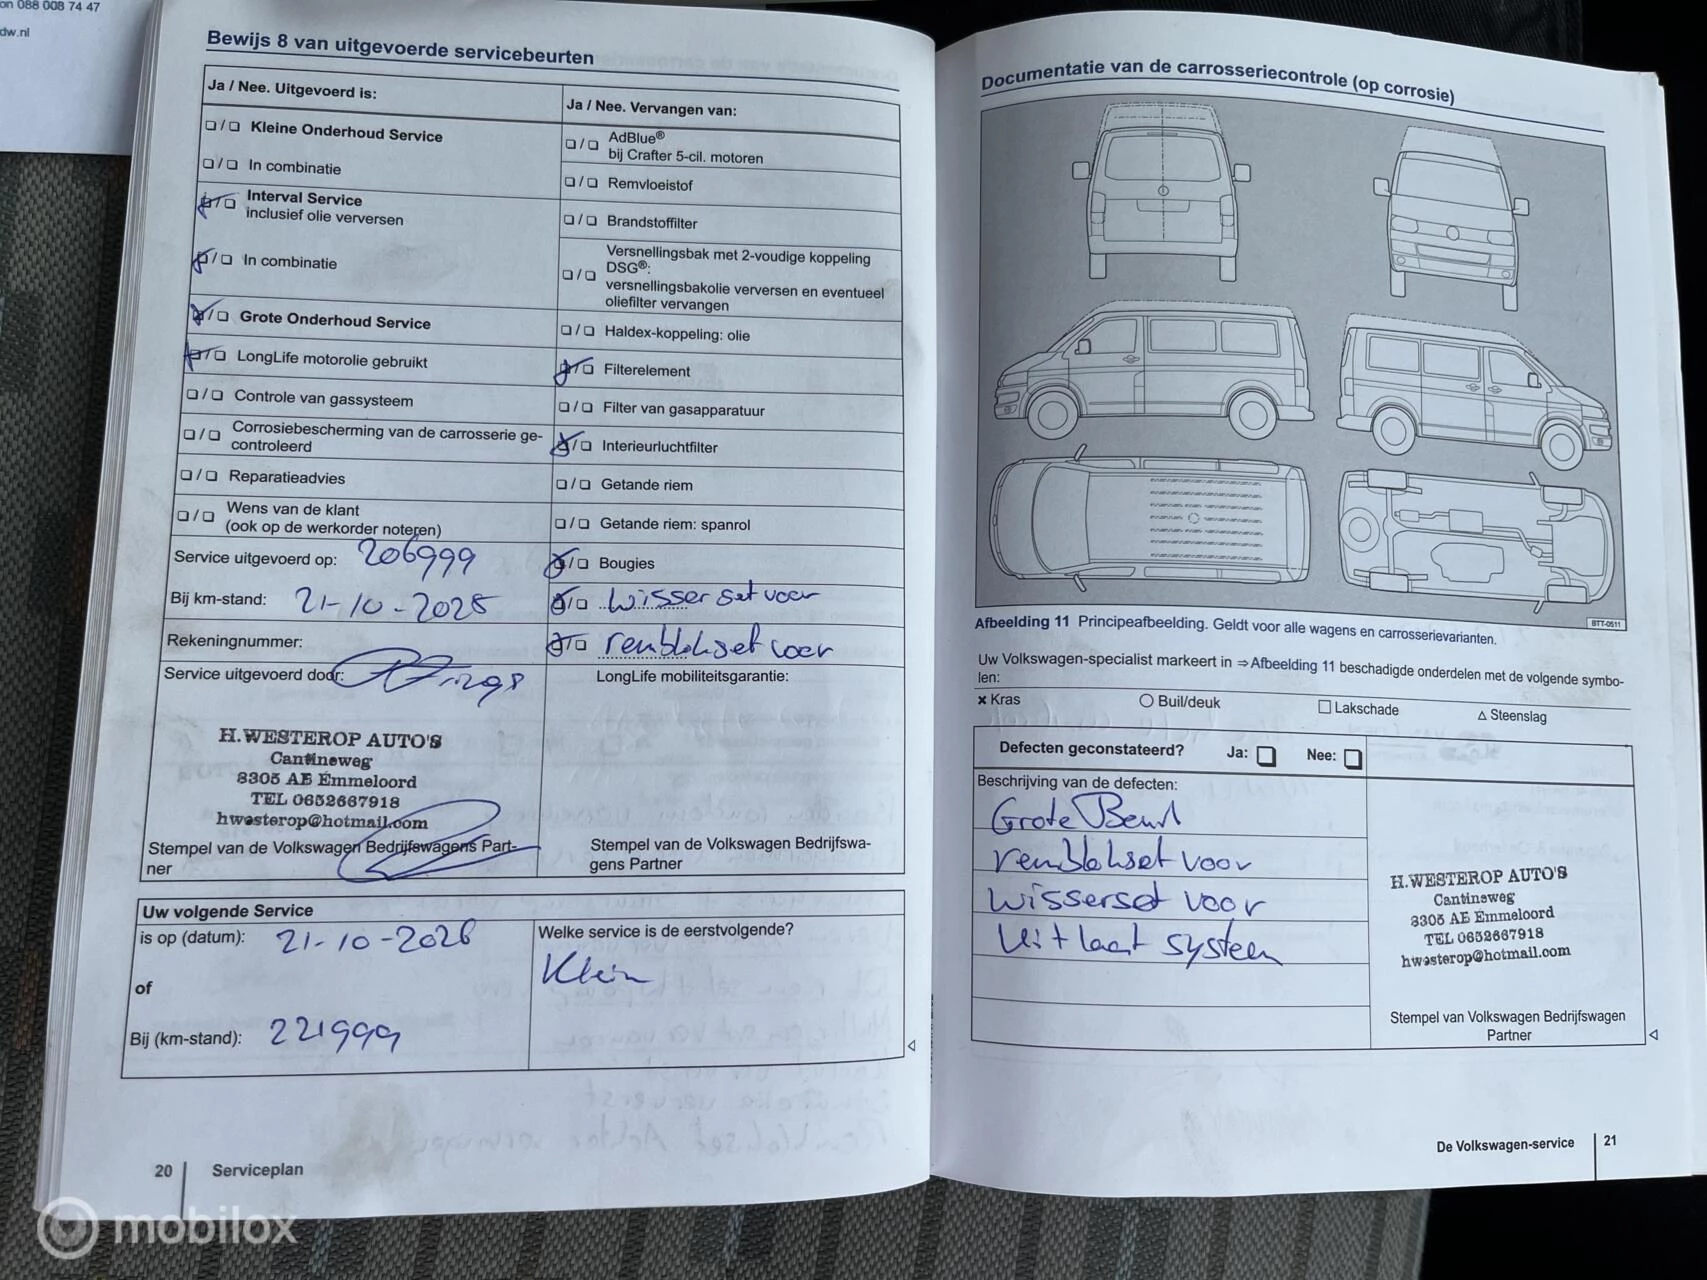 on 088 008 74 47
dw.nl
Bewijs 8 van uitgevoerde servicebeurten
Ja / Nee. Uitgevoerd is:
Ja / Nee. Vervangen van:
❏ / ❏ Kleine Onderhoud Service
❏ / ❏ In combinatie
❏ / ❏ Interval Service
inclusief olie verversen
❏ / ❏ In combinatie
❏ / ❏ Grote Onderhoud Service
❏ / ❏ LongLife motorolie gebruikt
❏ / ❏ Controle van gassysteem
❏ / ❏ Corrosiebescherming van de carrosserie ge-
controleerd
❏ / ❏ Reparatieadvies
❏ / ❏ Wens van de klant
(ook op de werkorder noteren)
Service uitgevoerd op: 206999
Bij km-stand: 21-10-2025
Rekeningnummer:
Service uitgevoerd door:
H.WESTEROP AUTO'S
Cantineweg
8305 AE Emmeloord
TEL 0652667918
hwesterop@hotmail.com
Stempel van de Volkswagen Bedrijfswagens Part-
ner
❏ / ❏ AdBlue®
bij Crafter 5-cil. motoren
❏ / ❏ Remvloeistof
❏ / ❏ Brandstoffilter
❏ / ❏ Versnellingsbak met 2-voudige koppeling
DSG®:
versnellingsbakolie verversen en eventueel
oliefilter vervangen
❏ / ❏ Haldex-koppeling: olie
❏ / ❏ Filterelement
❏ / ❏ Filter van gasapparatuur
❏ / ❏ Interieurluchtfilter
❏ / ❏ Getande riem
❏ / ❏ Getande riem: spanrol
❏ / ❏ Bougies
❏ / ❏ wisserset voor
❏ / ❏ remblokset voor
LongLife mobiliteitsgarantie:
Stempel van de Volkswagen Bedrijfswa-
gens Partner
Uw volgende Service
is op (datum): 21-10-2026
of
Bij (km-stand): 221999
Welke service is de eerstvolgende?
Klein
20 Serviceplan
Documentatie van de carrosseriecontrole (op corrosie)
BTT-0511
Afbeelding 11 Principeafbeelding. Geldt voor alle wagens en carrosserievarianten.
Uw Volkswagen-specialist markeert in ⇒ Afbeelding 11 beschadigde onderdelen met de volgende symbo-
len:
✖ Kras ◯ Buil/deuk ☐ Lakschade △ Steenslag
Defecten geconstateerd? Ja: ❏ Nee: ❏
Beschrijving van de defecten:
Grote Beurt
remblokset voor
wisserset voor
Uitlaat systeem
H.WESTEROP AUTO'S
Cantineweg
8305 AE Emmeloord
TEL 0652667918
hwesterop@hotmail.com
Stempel van Volkswagen Bedrijfswagen
Partner
De Volkswagen-service 21
mobilox